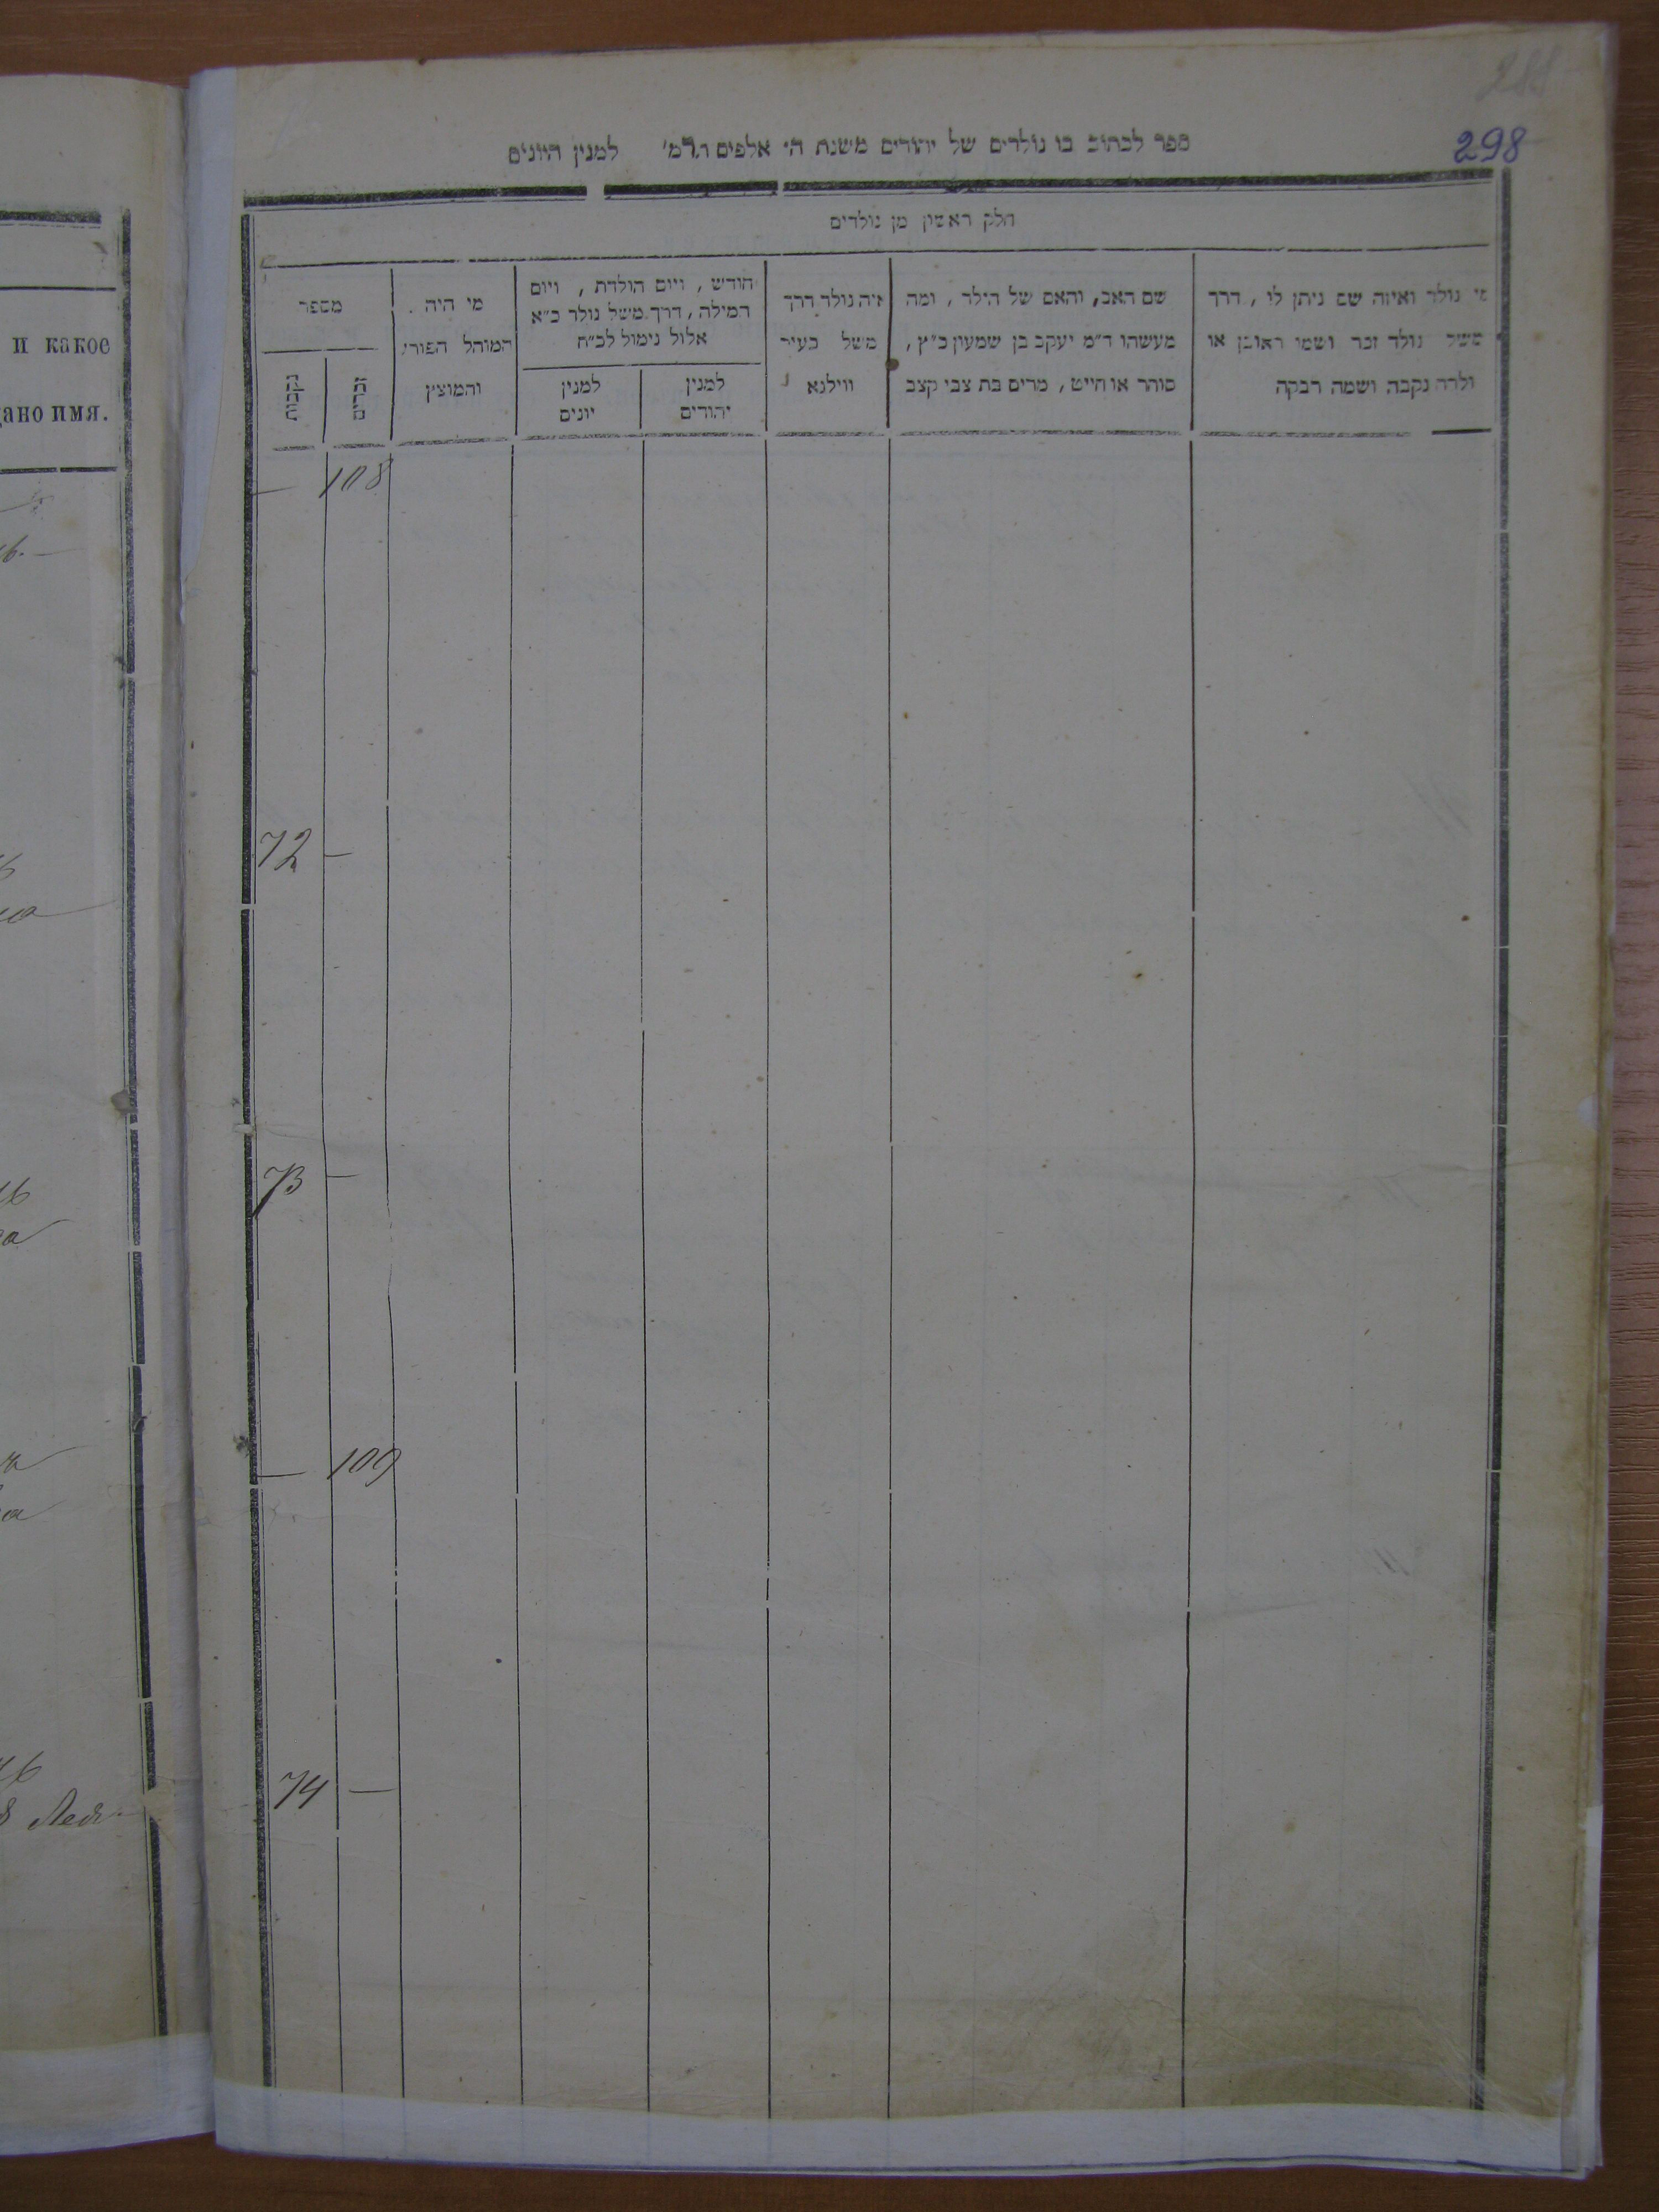 298
ספר לכתוב בו נולדים של יהודים משנת ה' אלפים ורמ' למנין היונים
חלק ראשון מן נולדים
מי נולד ואיזה שם ניתן לו, דרך
משל נולד זכר ושמו ראובן או
ולדה נקבה ושמה רבקה
שם האב, והאם של הילד, ומה
מעשהו ד"מ יעקב בן שמעין כ"ץ,
סוחר או חייט, מרים בת צבי קצב
איה נולד דרך
משל בעיר
ווילנא
חודש, ויום הולדת, ויום
המילה, דרך משל נולד כ"א
אלול נימול לכ"ח
למנין
יהודים
למנין
יונים
מי היה
המוהל הפורע
והמוצץ
מספר
זכרים
נקבות
108 —
— 72
— 73
109 —
— 74
и какое
дано имя.